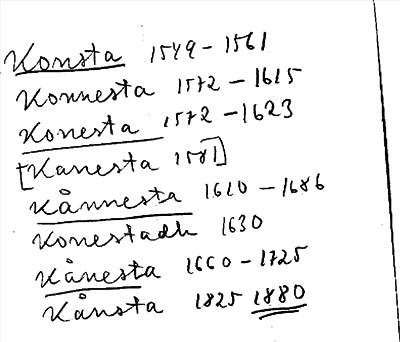 Konsta 1549-1561
Konnesta 1572-1615
Konesta 1572-1623
[Kanesta 1581]
Kånnesta 1610-1686
Konestadh 1630
Kånesta 1660-1725
Kånsta 1825 1880